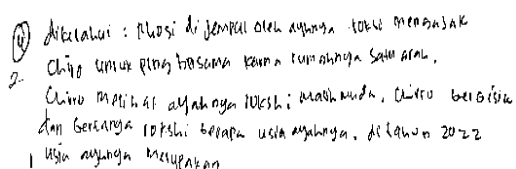 4) diketahui : Rhogi di jempul oleh ayahnya tokshi mengajak
2. Chiro untuk pulng bersama karna rumahnya satu arah.
Chirro melihat ayahnya rokshi masih muda, Chirro berbisik
dan bertanya rokshi berapa usia ayahnya, di tahun 2022
usia ayahnya merupakan